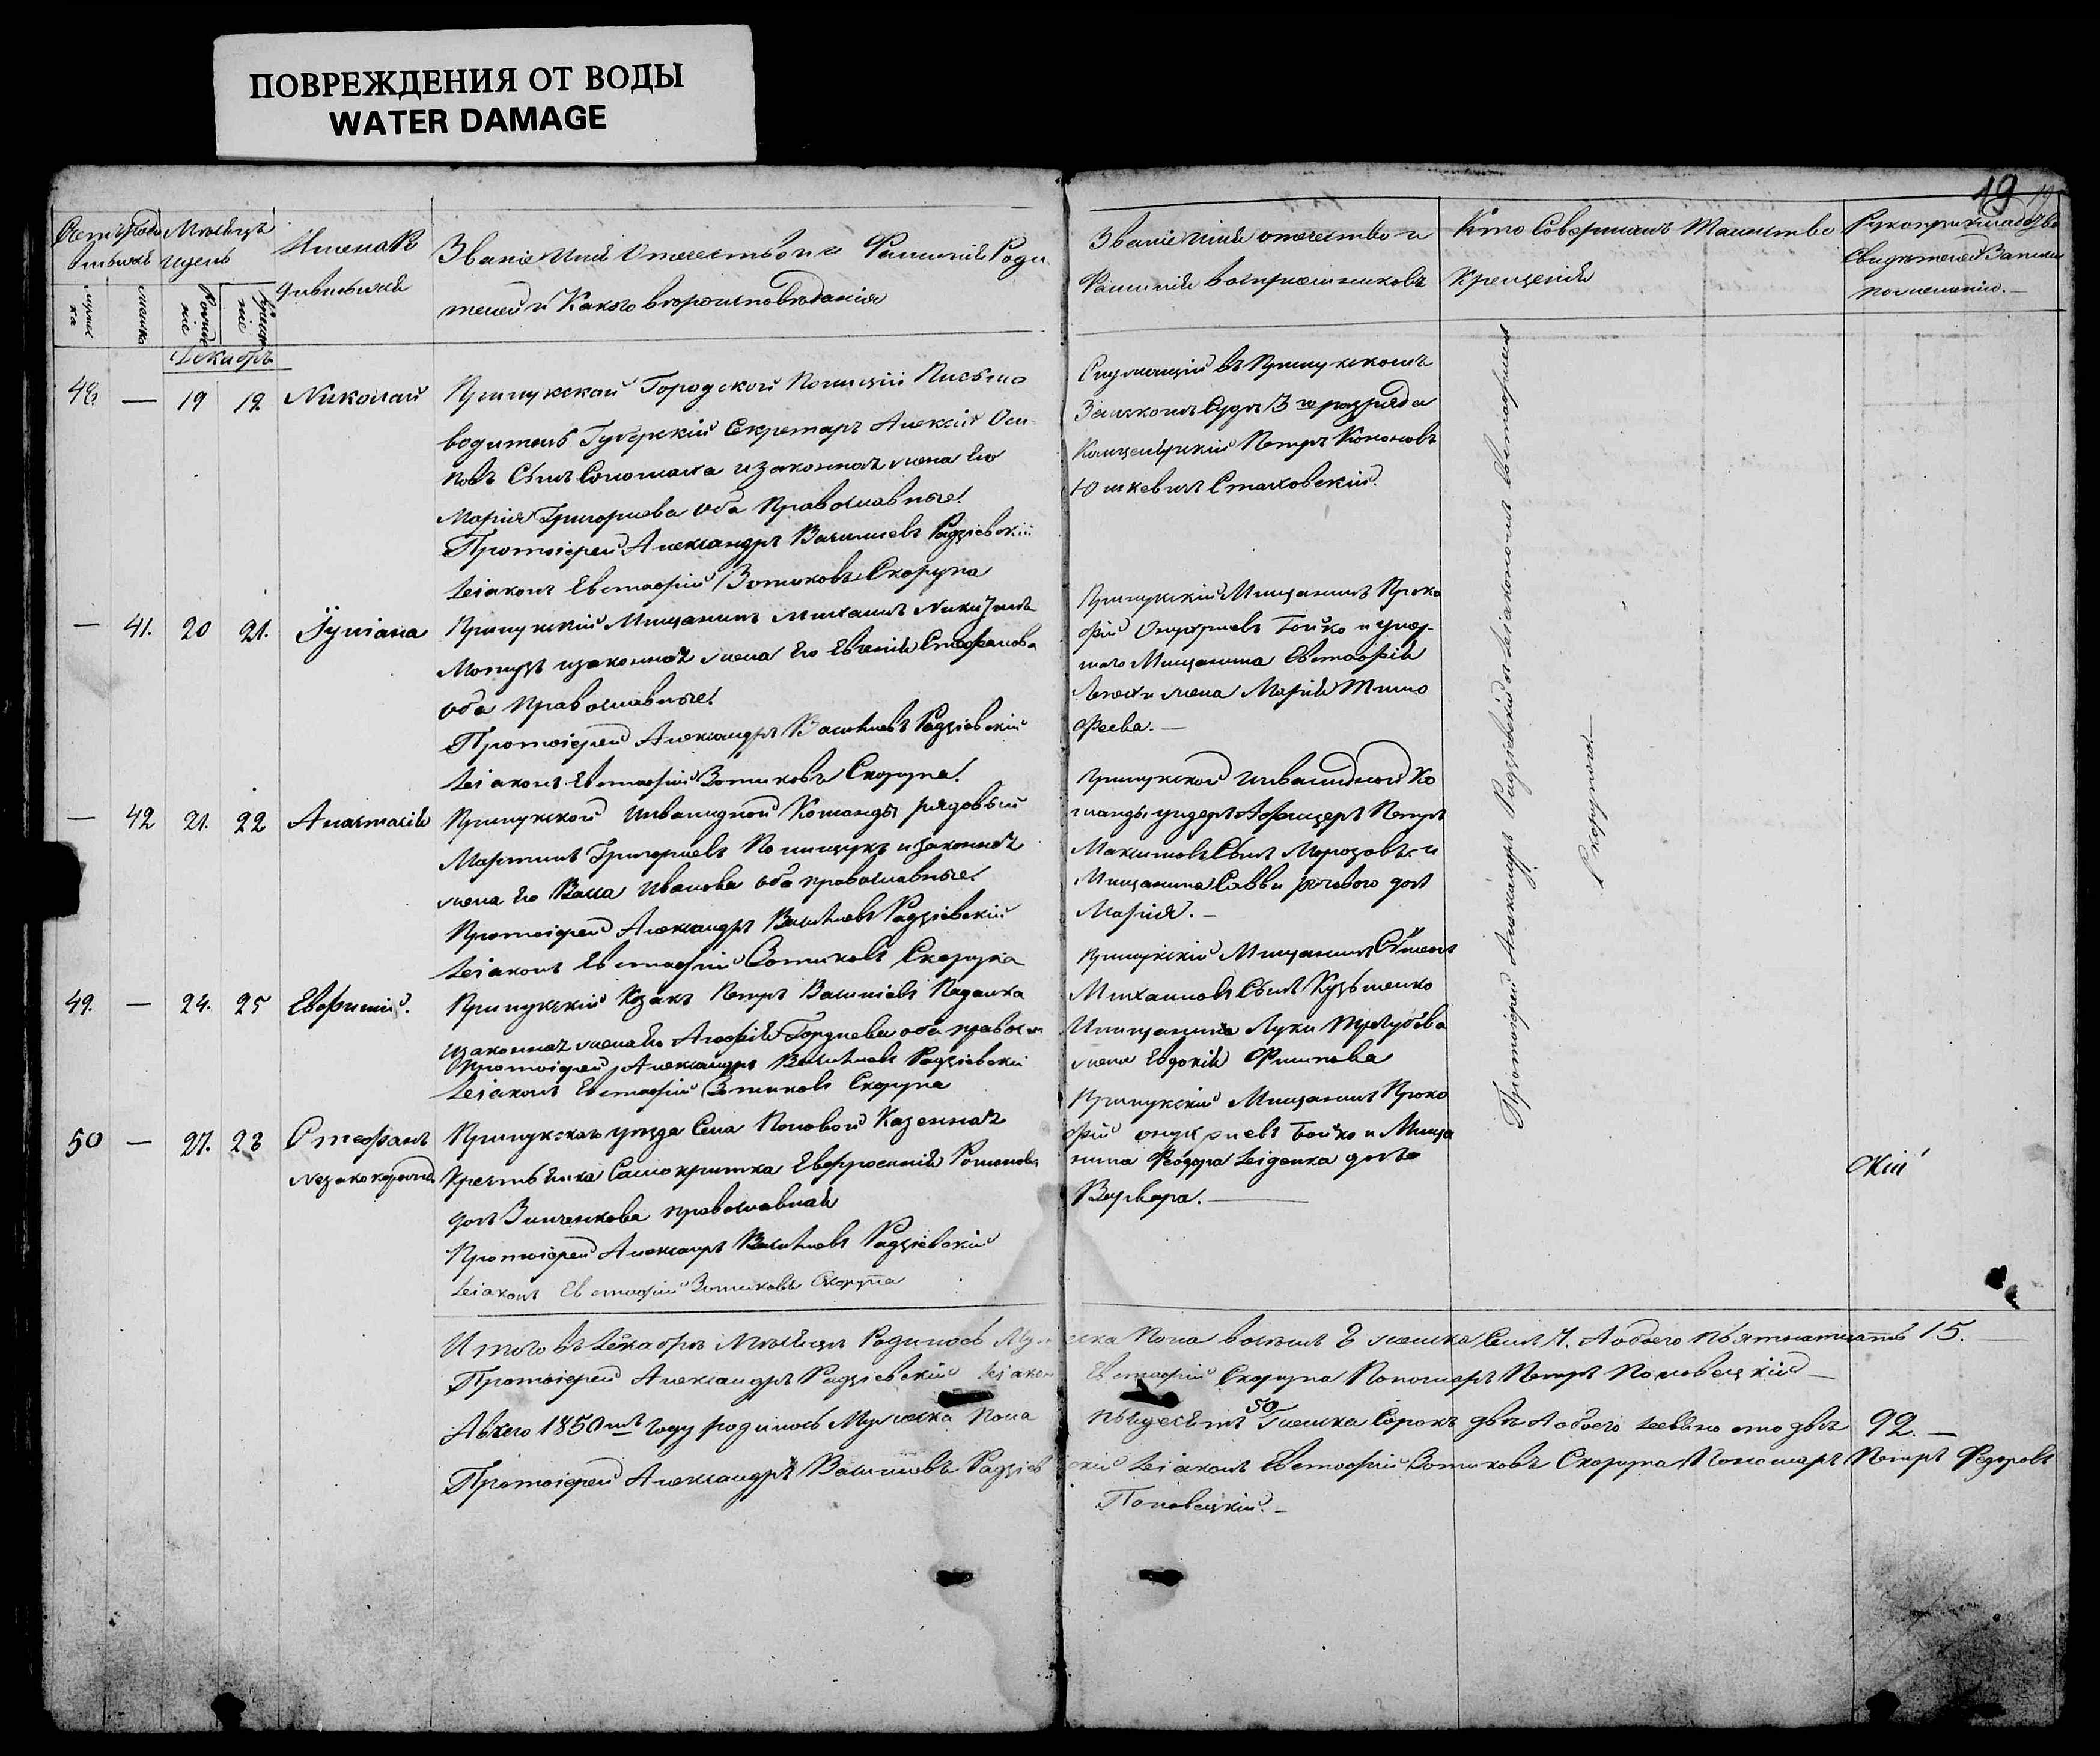 ПОВРЕЖДЕНИЯ ОТ ВОДЫ
WATER DAMAGE
19
Мѣсяцъ
Имена Ро
дившихся
Званіе Имя Отечество и Фамилія Роди
телей и Какого вѣроисповѣданія
Званіе имя отечество и
Фамилія воспріемниковъ
Кто Совершилъ Таинство
Крещенія
Рукоприкладство
Свидѣтелей Записи
по желанію. —
Декабрь
48 — 19 19 Николай
Прилукской Городской Полиціи Письмо
водитель Губерскій Секретарь Алексій Оси
повъ Сынъ Соломаха и законная жена Его
Марія Григориева оба Православные.
Протоіерей Александръ Василиевъ Радзіевскій
Діаконъ Евстафій Зотиковъ Скорупа
Служащій въ Прилукскомъ
Земскомъ Судѣ 3го разряда
Канцелярскій Петръ Кононовъ
Юшкевичъ Стаховскій.
— 41. 20 21. Іуліана
Прилукскій Мещанинъ Михаилъ
законная жена Его Евгенія Стефанова
оба Православные.
Протоіерей Александръ Василиевъ Радзіевскій
Діаконъ Евстафій Зотиковъ Скорупа.
Прилукскій Мещанинъ Проко
фій Онуфриевъ Бойко и умер-
шаго Мещанина Евстафія
жена Марія Тимо
феева. —
— 42 21. 22 Анастасія
Прилукской Инвалидной Команды рядовый
Мартинъ Григориевъ Полищукъ и законная
жена Его Васса Иванова оба православные.
Протоіерей Александръ Василиевъ Радзіевскій
Діаконъ Евстафій Зотиковъ Скорупа
Прилукской инвалидной Ко
манды ундеръ Афицеръ Петръ
Максимовъ Сынъ Морозовъ и
Мещанина Саввы дочь
Марія. —
49. — 24. 25 Евфимій.
Прилукскій Козакъ Петръ Василіевъ Падалка
и законная жена Его Агафія Гордиева оба правосл
Протоіерей Александръ Василиевъ Радзіевскій
Діаконъ Евстафій Зотиковъ Скорупа
Прилукскій Мещанинъ
Михаиловъ Сынъ Кузьменко
и Мещанина Луки
жена Евдокія Филипова
50 — 27. 28 Стефанъ
незаконорожд
Прилукскаго уезда Села Поповой Казенная
Крестьянка Евфросинія Романова
дочь Зинченкова православная
Протоіерей Александръ Василиевъ Радзіевскій
Діаконъ Евстафій Зотиковъ Скорупа
Прилукскій Мещанинъ Проко
фій онуфриевъ Бойко и Меща
нина Феодора Дейденка дочь
Варвара. —
Протоіерей Александръ Радзіевскій съ Діакономъ Евстафіемъ
Скорупою. —
Итого въ Декабрѣ Мѣсяцѣ Родилось Му жеска Пола восемь 8 женска Семь 7. А обоего пятнатцать 15.
Протоіерей Александръ Радзіевскій Діаконъ Евстафій Скорупа Пономарь Петръ Половецкій —
А всего 1850мъ году родилось Мужеска Пола пядесятъ 50 женска Сорокъ двѣ А обоего девяносто двѣ 92. —
Протоіерей Александръ Василиевъ Радзіевскій Діаконъ Евстафій Зотиковъ Скорупа Пономарь Петръ Федоровъ
Половецкій. —